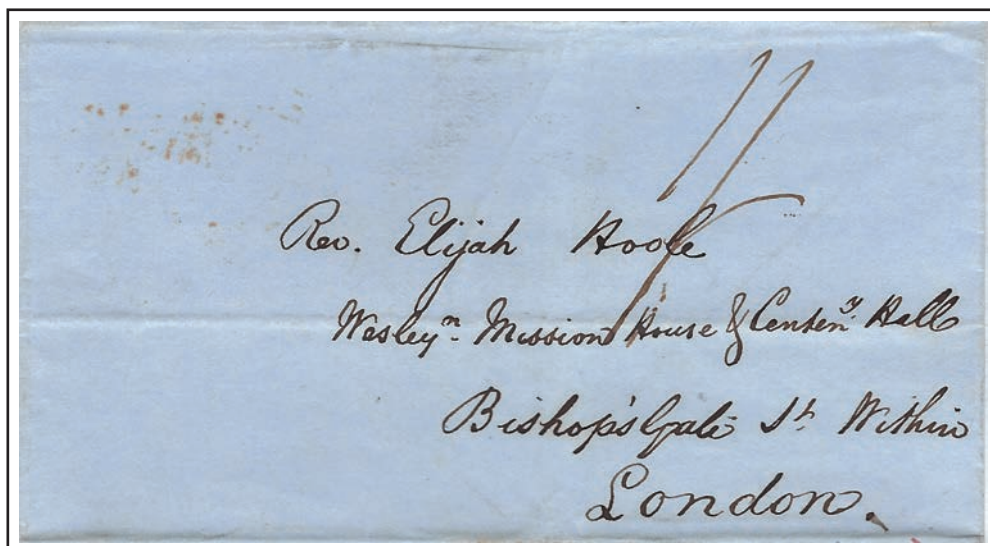 Rev. Elijah Hoole
Wesleyn. Mission House & Centeny. Hall
Bishop'sGate St. Within
London.